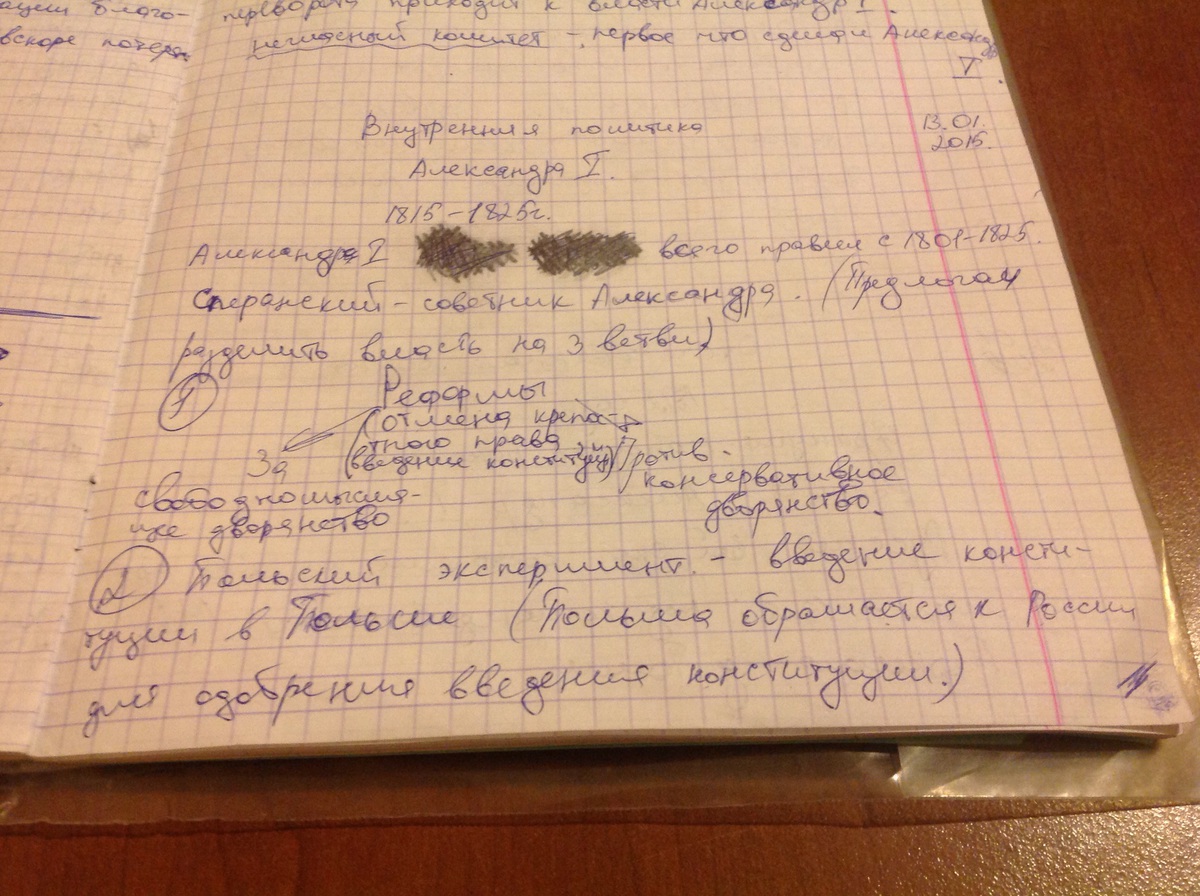 ации благо-
вскоре потеря
переворота приходит к власти Александр I.
негласный комитет - первое что сделал Александр
I.
13.01.
2015.
Внутренния политика
Александра I.
1815-1825г.
Александра I всего правил с 1801-1825.
Сперанский - советник Александра. (Предлогал
разделить власть на 3 ветви)
1 Реформы
(отмена крепос-
тного права,
введение конституции)
За Против -
свободномысля- консервативное
щее дворянство дворянство.
2 Польский эксперимент. - введение консти-
туции в Польше (Польша обращается к России
для одобрения введения конституции.)